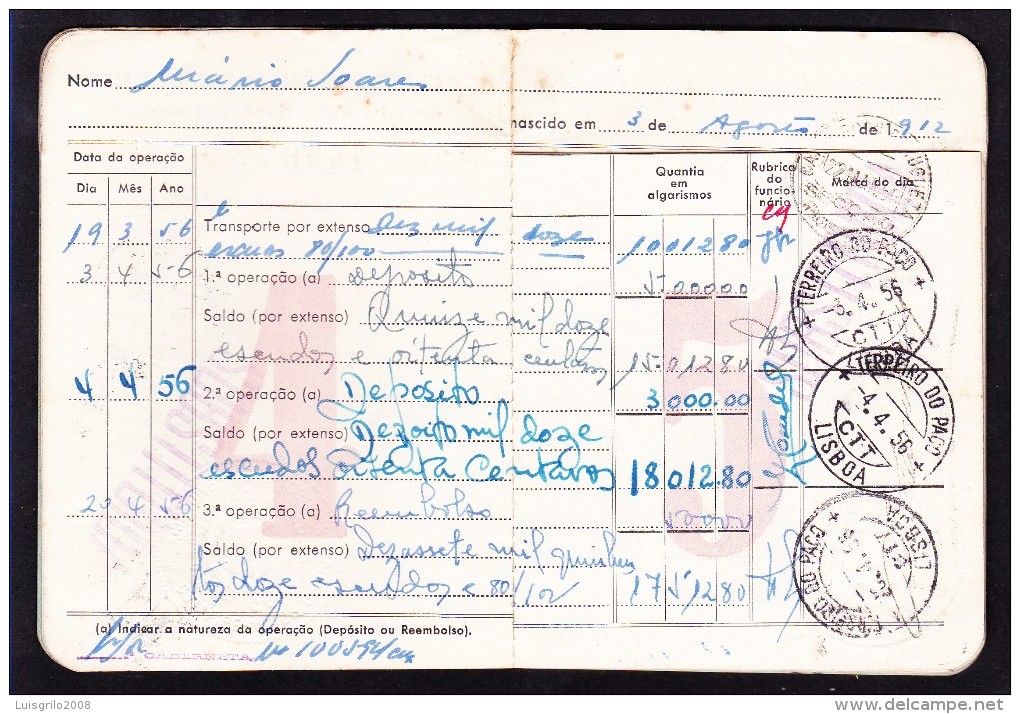 Nome Mário Soares
nascido em 3 de Agosto de 1912
Data da operação
Dia Mês Ano
Quantia em algarismos
Rubrica do funcionário
Marca do dia
19 3 56 Transporte por extenso Dez mil e doze 10012 80
escudos 80/100
3 4 56 1.ª operação (a) Deposito 5000 00
Saldo (por extenso) Quinze mil doze
escudos e oitenta centavos 15.012 80
4 4 56 2.ª operação (a) Deposito 3 000.00
Saldo (por extenso) Dezoito mil doze
escudos oitenta centavos 18 012.80
20 4 56 3.ª operação (a) Reembolso 500 00
Saldo (por extenso) Dezassete mil quinhen
tos doze escudos e 80/100 17 512 80
(a) Indicar a natureza da operação (Depósito ou Reembolso).
CADERNETA
TERREIRO DO PAÇO
3.4.56
CTT
TERREIRO DO PAÇO
-4.4.56
CTT
LISBOA
TERREIRO DO PAÇO
CTT
LISBOA
Luisgrilo2008